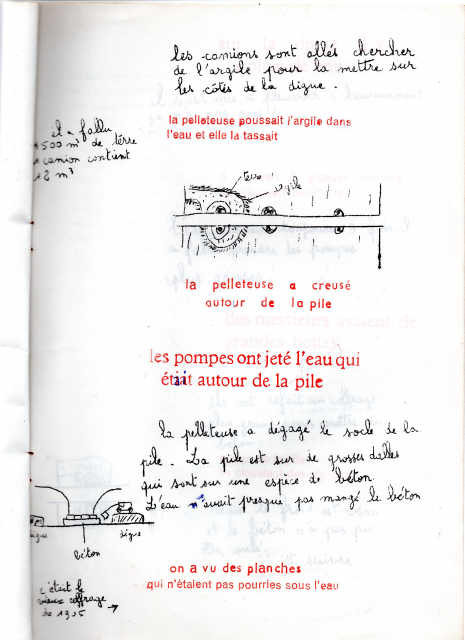 les camions sont allés chercher
de l'argile pour la mettre sur
les côtés de la digue.
la pelleteuse poussait l'argile dans
l'eau et elle la tassait
il a fallu
1500 m³ de terre
1 camion contient
12 m³
terre
argile
la pelleteuse a creusé
autour de la pile
les pompes ont jeté l'eau qui
était autour de la pile
la pelleteuse a dégagé le socle de la
pile. La pile est sur de grosses dalles
qui sont sur une espèce de béton.
L'eau n'avait presque pas mangé le béton
digue
béton
on a vu des planches
qui n'étaient pas pourries sous l'eau
c'était le
vieux coffrage
de